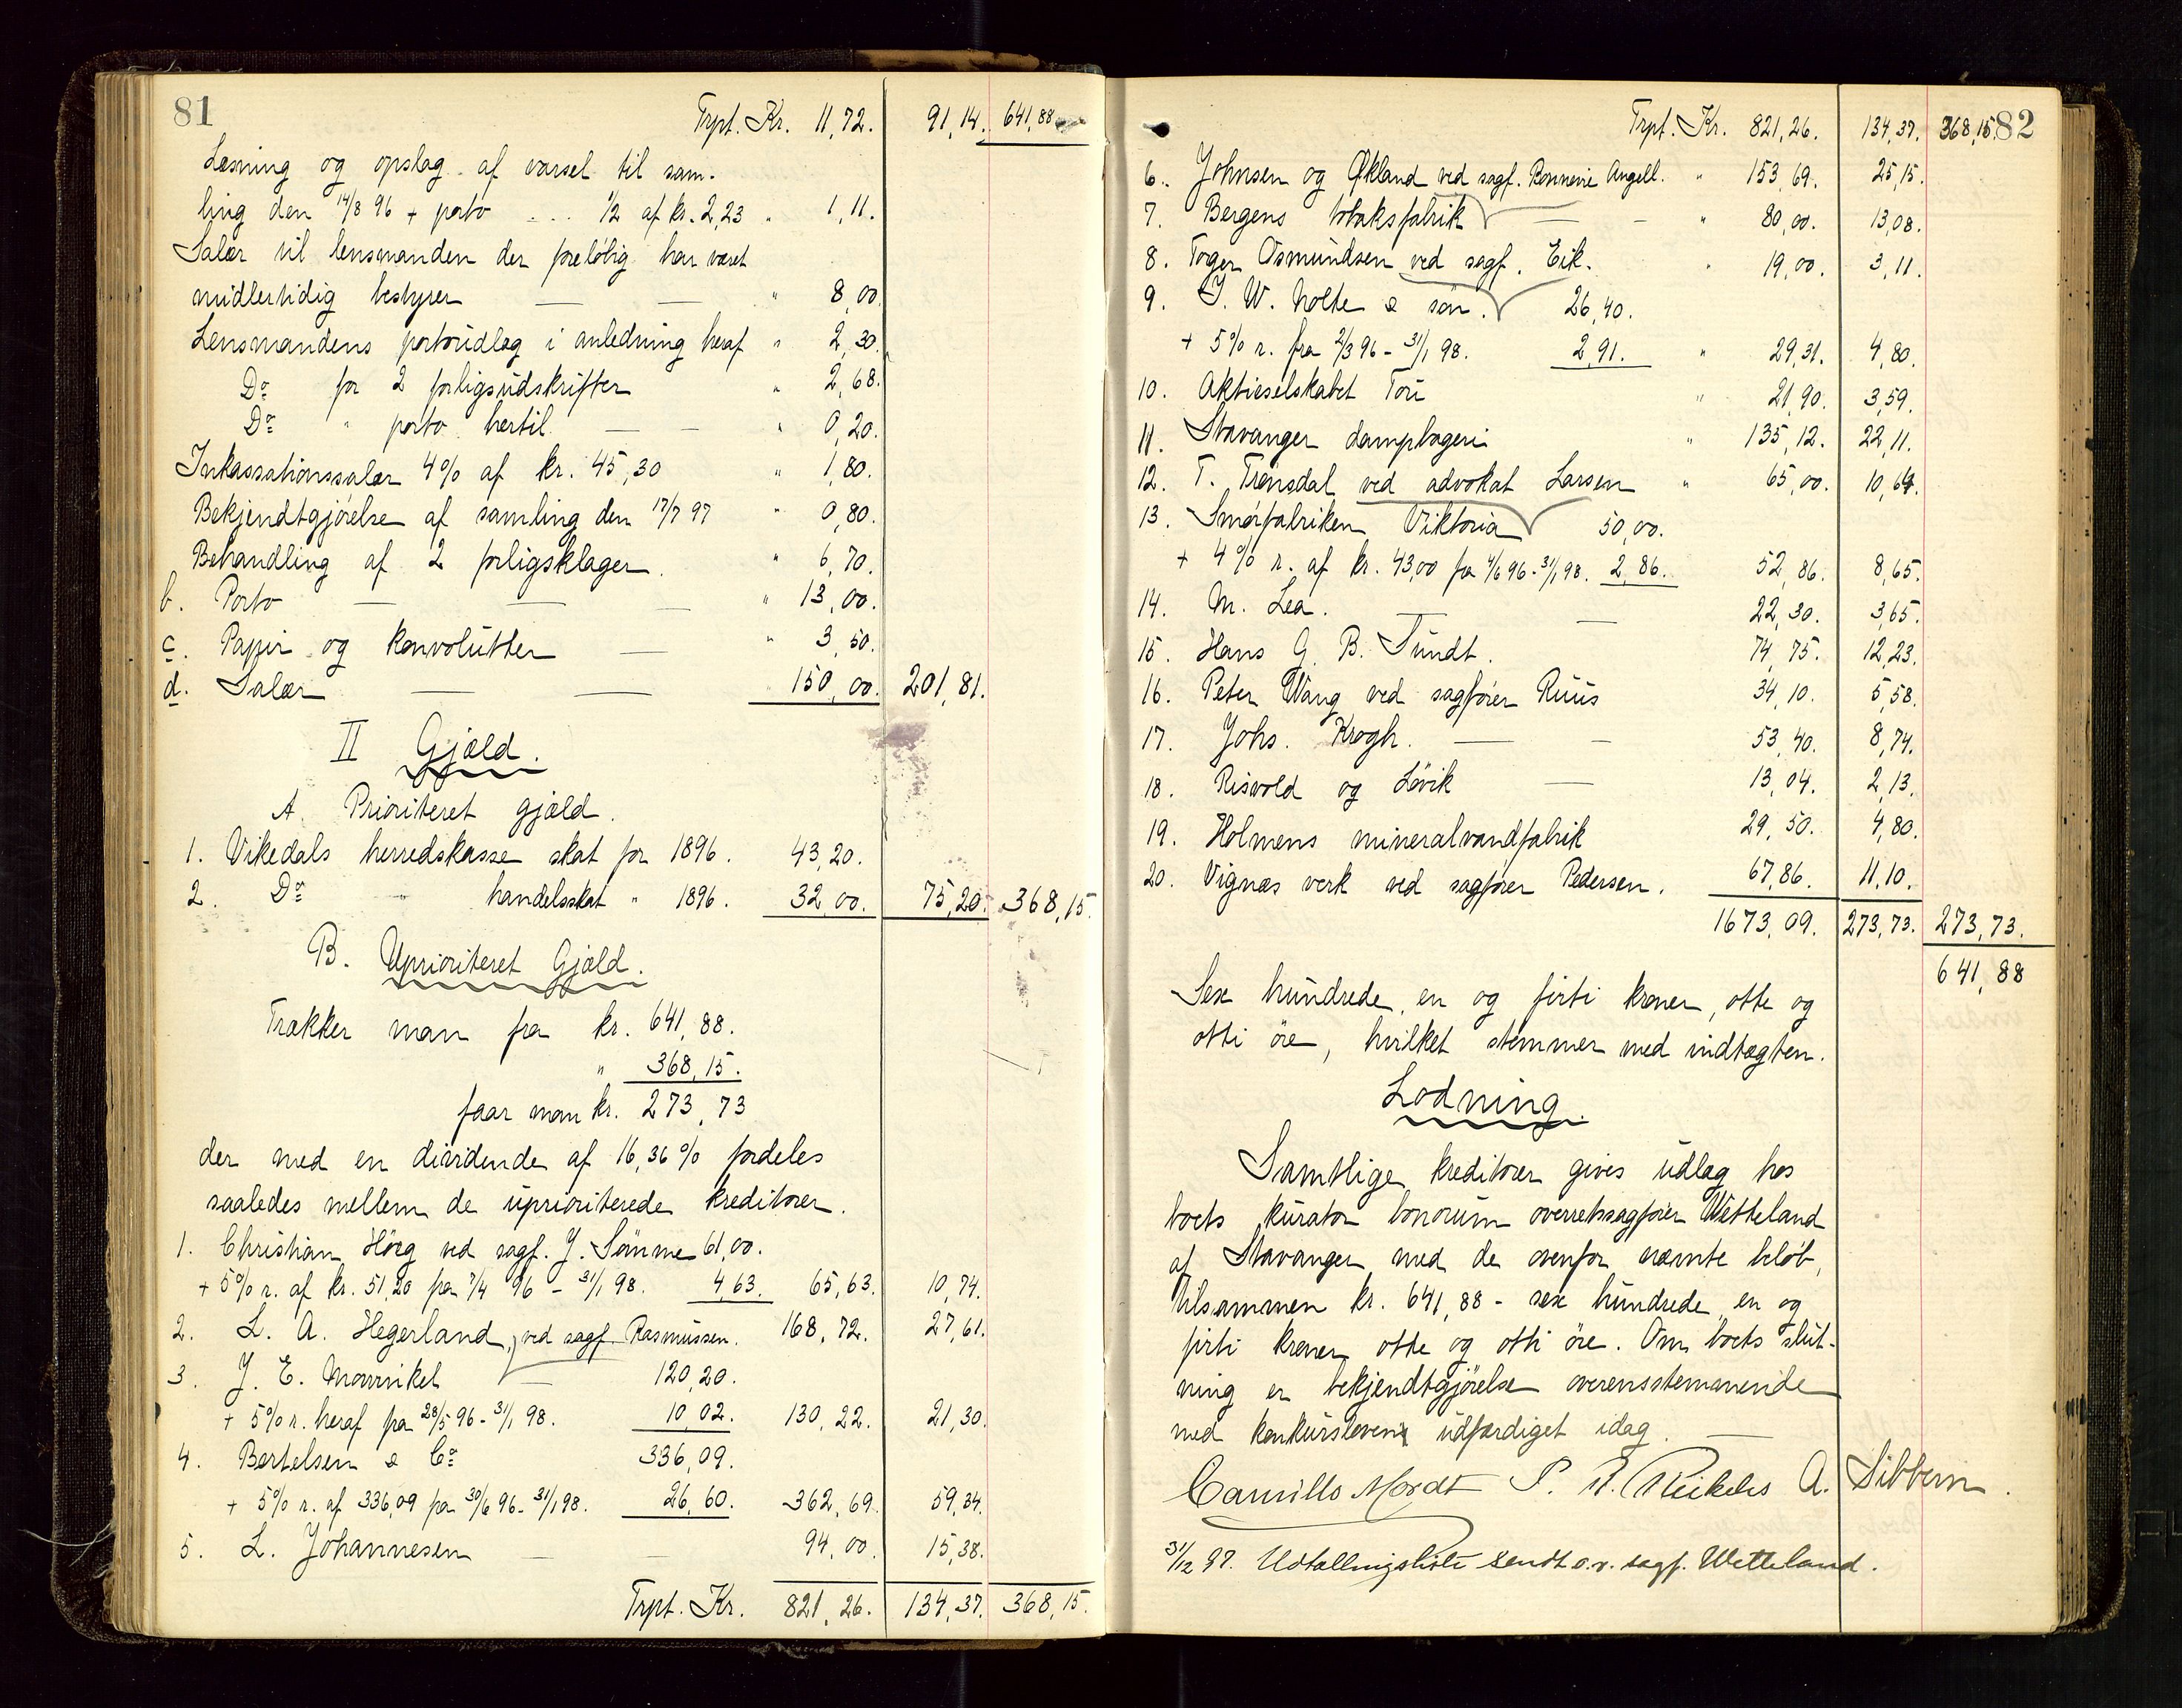 81
Trpt. Kr. 11,72. 91,14. 641,88
Læsning og opslag af varsel til sam-
ling den 14/8 96 + porto ... 1/2 af kr. 2,23 " 1,11.
Salær til lensmanden der foreløbig har været
midlertidig bestyrer — — " 8,00.
Lensmandens portoudlæg i anledning heraf " 2,30.
Do for 2 forligsudskrifter " 2,68.
Do " porto hertil — — " 0,20.
Inkassationssalær 4% af kr. 45,30 " 1,80.
Bekjendtgjørelse af samling den 17/7 97 " 0,80.
Behandling af 2 forligsklager. " 6,70.
b. Porto — — — " 13,00.
c. Papir og konvolutter — " 3,50.
d. Salær — — " 150,00. 201,81.
II Gjæld.
A. Prioriteret gjæld.
1. Vikedals herredskasse skat for 1896. 43,20.
2. Do handelsskat " 1896. 32,00. 75,20. 368,15.
B. Uprioriteret Gjæld.
Trækker man fra kr. 641,88.
" 368,15.
faar man kr. 273,73
der med en dividende af 16,36% fordeles
saaledes mellem de uprioriterede kreditorer.
1. Christian Hörg ved sagf. J. Sömme 61,00.
+ 5% r. af kr. 51,20 fra 7/4 96 - 31/1 98. 4,63. 65,63. 10,74.
2. L. A. Hegerland, ved sagf. Rasmussen. 168,72. 27,61.
3. J. E. Mowinkel — 120,20.
+ 5% r. heraf fra 28/5 96 - 31/1 98. 10,02. 130,22. 21,30.
4. Bertelsen & Co 336,09.
+ 5% r. af 336,09 fra 30/6 96 - 31/1 98. 26,60. 362,69. 59,34.
5. L. Johannesen — — 94,00. 15,38.
Trpt. Kr. 821,26. 134,37. 368,15.
82
Trpt. Kr. 821,26. 134,37. 368,15.
6. Johnsen og Økland ved sagf. Bonnevie Angell. " 153,69. 25,15.
7. Bergens tobaksfabrik — — " 80,00. 13,08.
8. Toger Osmundsen ved sagf. Eik. " 19,00. 3,11.
9. J. W. Holte & søn. 26,40.
+ 5% r. fra 2/3 96 - 31/1 98. 2,91. " 29,31. 4,80.
10. Aktieselskabet Tou " 21,90. 3,59.
11. Stavanger dampbageri " 135,12. 22,11.
12. T. Trønsdal ved advokat Larsen " 65,00. 10,64.
13. Smørfabriken Viktoria 50,00.
+ 4% r. af kr. 43,00 fra 4/6 96 - 31/1 98. 2,86. 52,86. 8,65.
14. M. Lea. — — 22,30. 3,65.
15. Hans G. B. Sundt. 74,75. 12,23.
16. Peter Wang ved sagfører Ruus 34,10. 5,58.
17. Johs. Krogh. — — 53,40. 8,74.
18. Risvold og Løvik — 13,04. 2,13.
19. Holmens mineralvandfabrik 29,50. 4,80.
20. Vignæs verk ved sagfører Pedersen. 67,86. 11,10.
1673,09. 273,73. 273,73.
641,88
Sex hundrede, en og firti kroner, otte og
otti öre, hvilket stemmer med indtægten.
Lodning.
Samtlige kreditorer gives udlæg hos
boets kurator bonorum overretssagfører Wetteland
af Stavanger med de ovenfor nævnte beløb,
tilsammen kr. 641,88 - sex hundrede en og
firti kroner otte og otti öre. Om boets slut-
ning er bekjendtgjørelse overensstemmende
med konkursloven udfærdiget idag. —
Camillo Mordt P. A. A. Sibbern.
31/12 97. Udtallingsliste sendt o.r. sagf. Wetteland.